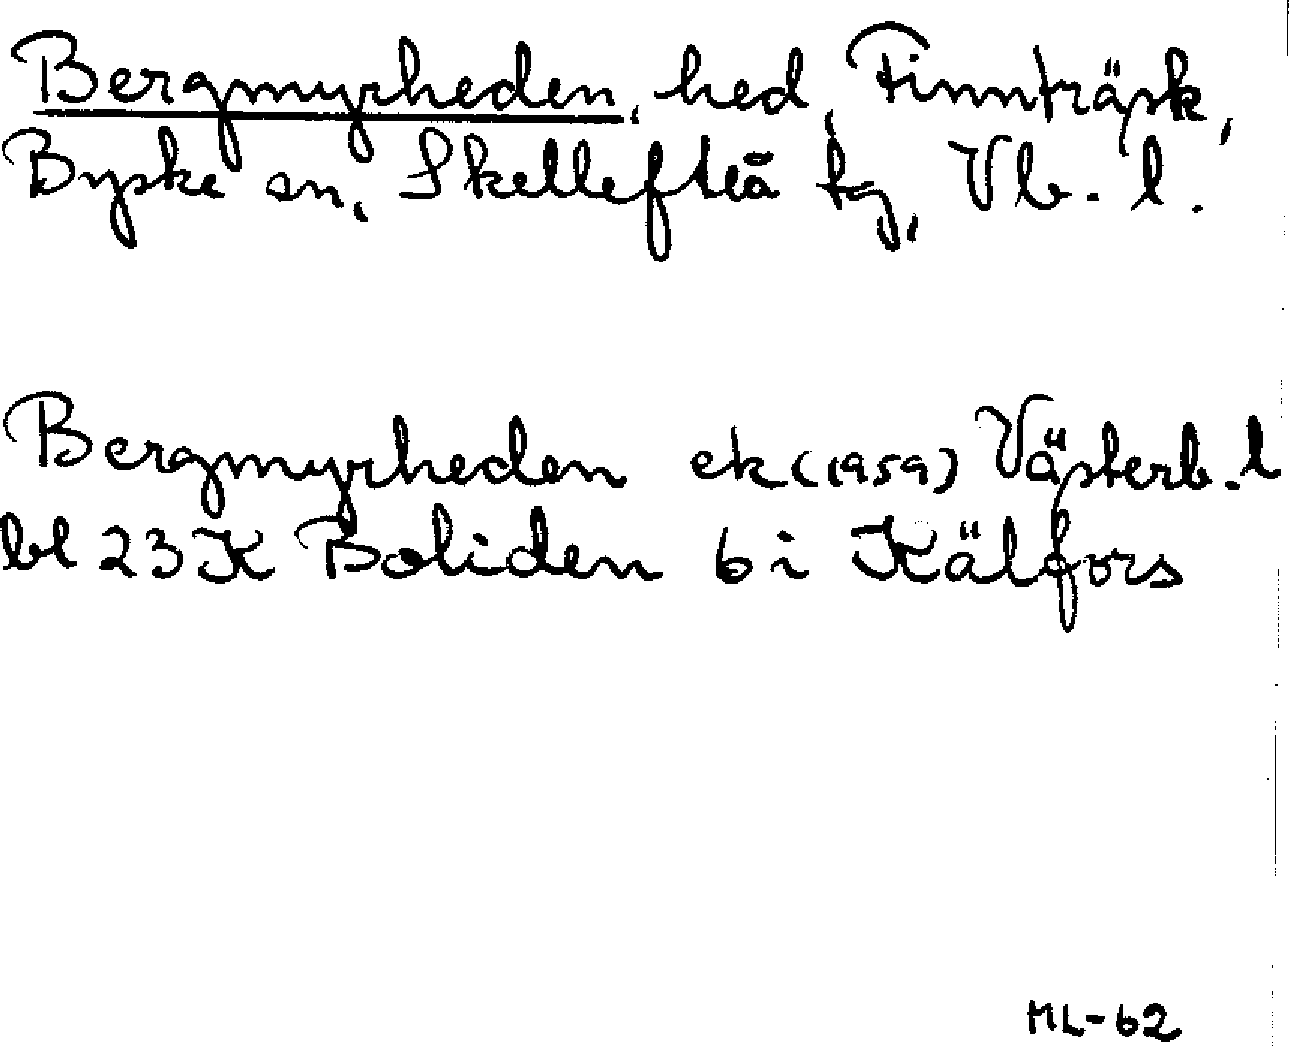 Bergmyrheden, hed, Finnträsk,
Byske sn, Skellefteå tg, Vb. l.
Bergmyrheden ek (1959) Västerb. l
bl 23K Boliden 6i Kälfors
ML-62